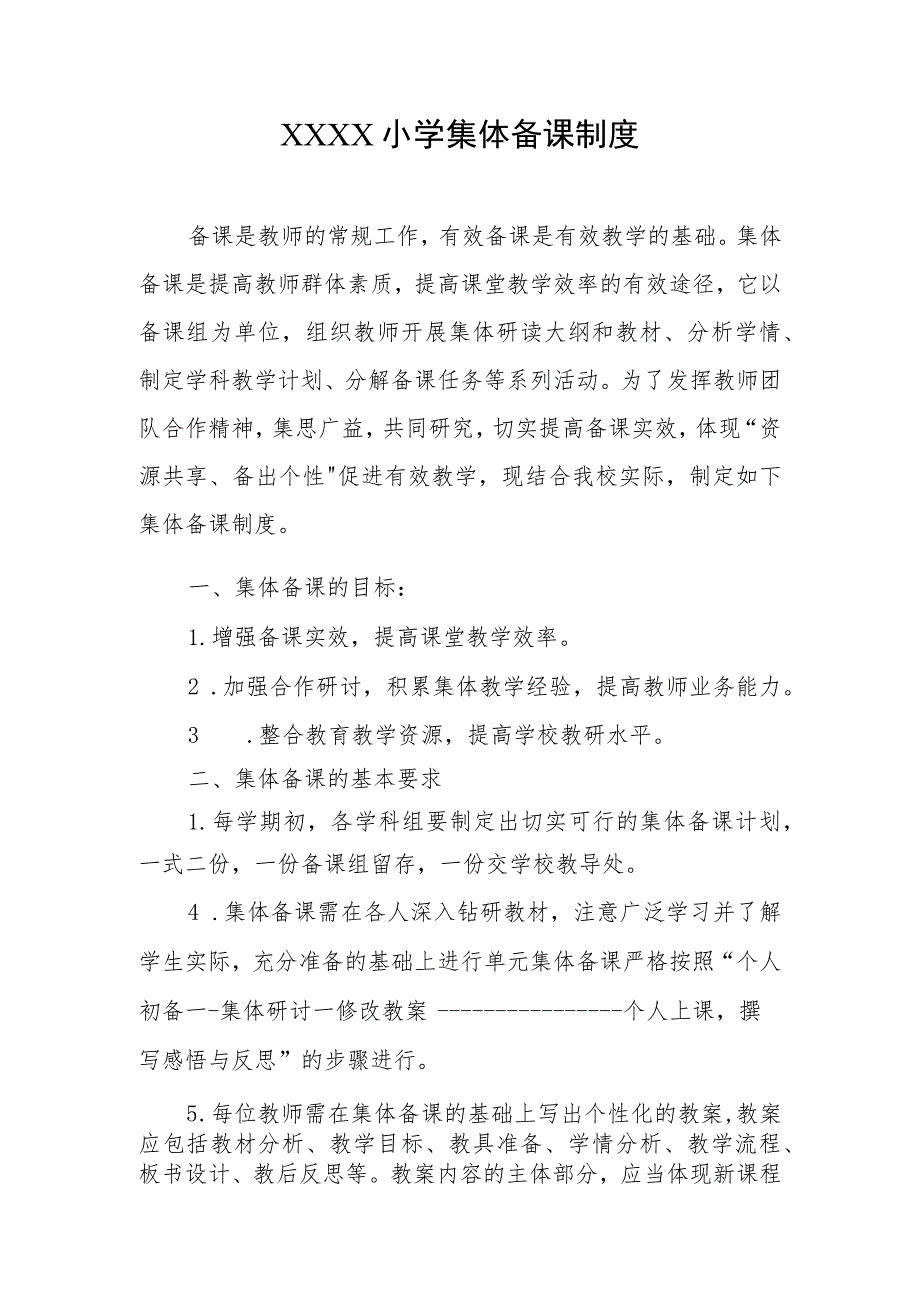 XXXX 小学集体备课制度
备课是教师的常规工作，有效备课是有效教学的基础。集体
备课是提高教师群体素质，提高课堂教学效率的有效途径，它以
备课组为单位，组织教师开展集体研读大纲和教材、分析学情、
制定学科教学计划、分解备课任务等系列活动。为了发挥教师团
队合作精神，集思广益，共同研究，切实提高备课实效，体现“资
源共享、备出个性"促进有效教学，现结合我校实际，制定如下
集体备课制度。
一、集体备课的目标：
1.增强备课实效，提高课堂教学效率。
2 .加强合作研讨，积累集体教学经验，提高教师业务能力。
3 .整合教育教学资源，提高学校教研水平。
二、集体备课的基本要求
1.每学期初，各学科组要制定出切实可行的集体备课计划，
一式二份，一份备课组留存，一份交学校教导处。
4 .集体备课需在各人深入钻研教材，注意广泛学习并了解
学生实际，充分准备的基础上进行单元集体备课严格按照“个人
初备一-集体研讨一修改教案 ----------------个人上课，撰
写感悟与反思”的步骤进行。
5.每位教师需在集体备课的基础上写出个性化的教案,教案
应包括教材分析、教学目标、教具准备、学情分析、教学流程、
板书设计、教后反思等。教案内容的主体部分，应当体现新课程